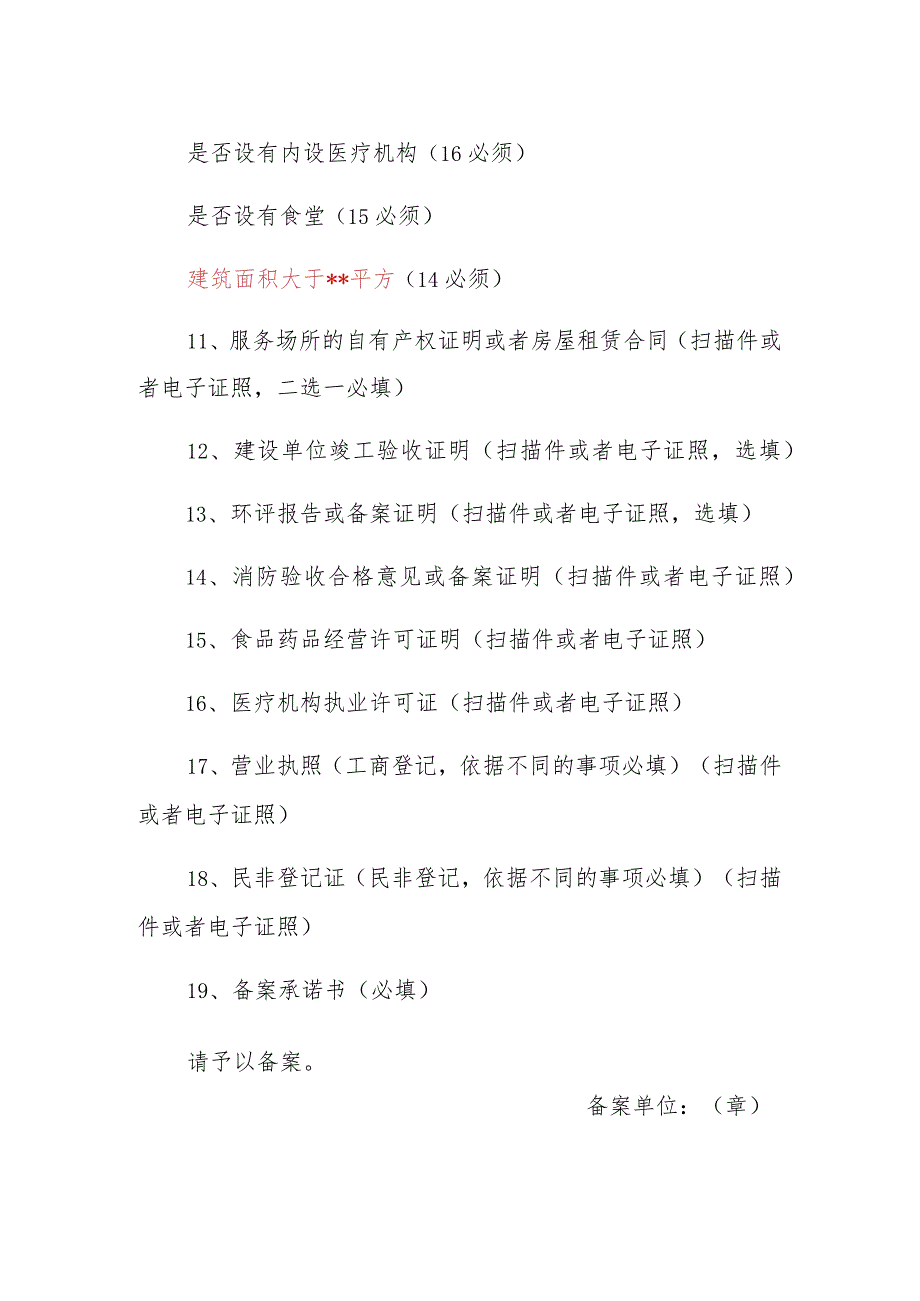 是否设有内设医疗机构（16 必须）
是否设有食堂（15 必须）
建筑面积大于**平方（14 必须）
11、服务场所的自有产权证明或者房屋租赁合同（扫描件或
者电子证照，二选一必填）
12、建设单位竣工验收证明（扫描件或者电子证照，选填）
13、环评报告或备案证明（扫描件或者电子证照，选填）
14、消防验收合格意见或备案证明（扫描件或者电子证照）
15、食品药品经营许可证明（扫描件或者电子证照）
16、医疗机构执业许可证（扫描件或者电子证照）
17、营业执照（工商登记，依据不同的事项必填）（扫描件
或者电子证照）
18、民非登记证（民非登记，依据不同的事项必填）（扫描
件或者电子证照）
19、备案承诺书（必填）
请予以备案。
备案单位：（章）